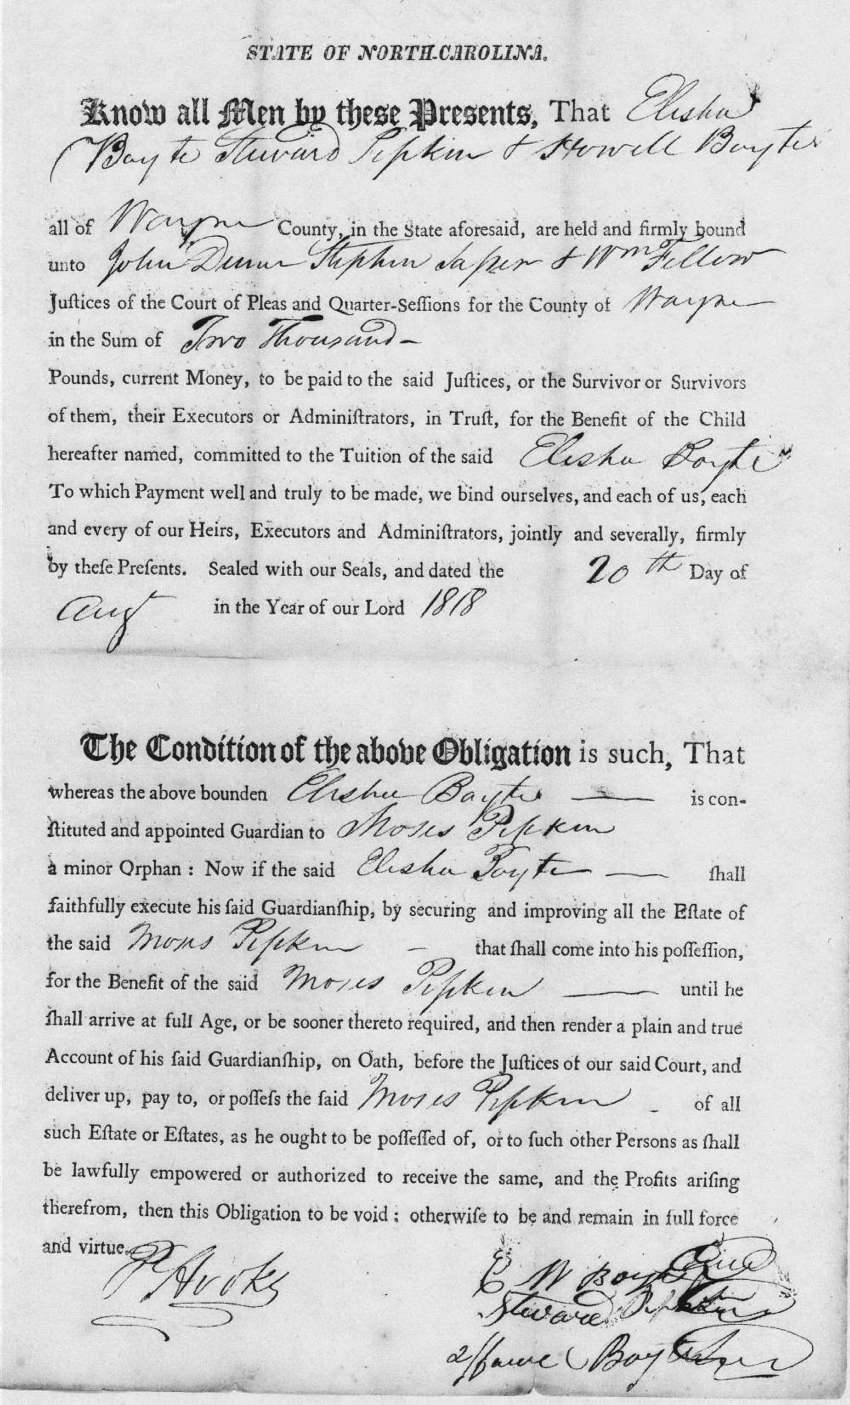 STATE OF NORTH-CAROLINA.
Know all Men by these Presents, That Elisha
Boyte Steward Pipkin & Howell Boyte
all of Wayne County, in the State aforesaid, are held and firmly bound
unto John Stephen & Wm Fellow
Juſtices of the Court of Pleas and Quarter-Seſſions for the County of Wayne
in the Sum of Two Thousand –
Pounds, current Money, to be paid to the said Juſtices, or the Survivor or Survivors
of them, their Executors or Adminiſtrators, in Truſt, for the Benefit of the Child
hereafter named, committed to the Tuition of the said Elisha Boyte
To which Payment well and truly to be made, we bind ourselves, and each of us, each
and every of our Heirs, Executors and Adminiſtrators, jointly and severally, firmly
by theſe Preſents. Sealed with our Seals, and dated the 20th Day of
Augt in the Year of our Lord 1818
The Condition of the above Obligation is such, That
whereas the above bounden Elisha Boyte — is con-
ſtituted and appointed Guardian to Moses Pipkin
a minor Orphan : Now if the said Elisha Boyte — ſhall
faithfully execute his ſaid Guardianſhip, by securing and improving all the Eſtate of
the said Moses Pipkin – that ſhall come into his poſſeſſion,
for the Benefit of the said Moses Pipkin — until he
ſhall arrive at full Age, or be sooner thereto required, and then render a plain and true
Account of his ſaid Guardianſhip, on Oath, before the Juſtices of our said Court, and
deliver up, pay to, or poſſeſs the ſaid Moses Pipkin – of all
such Eſtate or Eſtates, as he ought to be poſſeſſed of, or to ſuch other Persons as ſhall
be lawfully empowered or authorized to receive the same, and the Profits ariſing
therefrom, then this Obligation to be void ; otherwiſe to be and remain in full force
and virtue.
P Hooks
E W Boyte
Steward Pipkin
Boyte